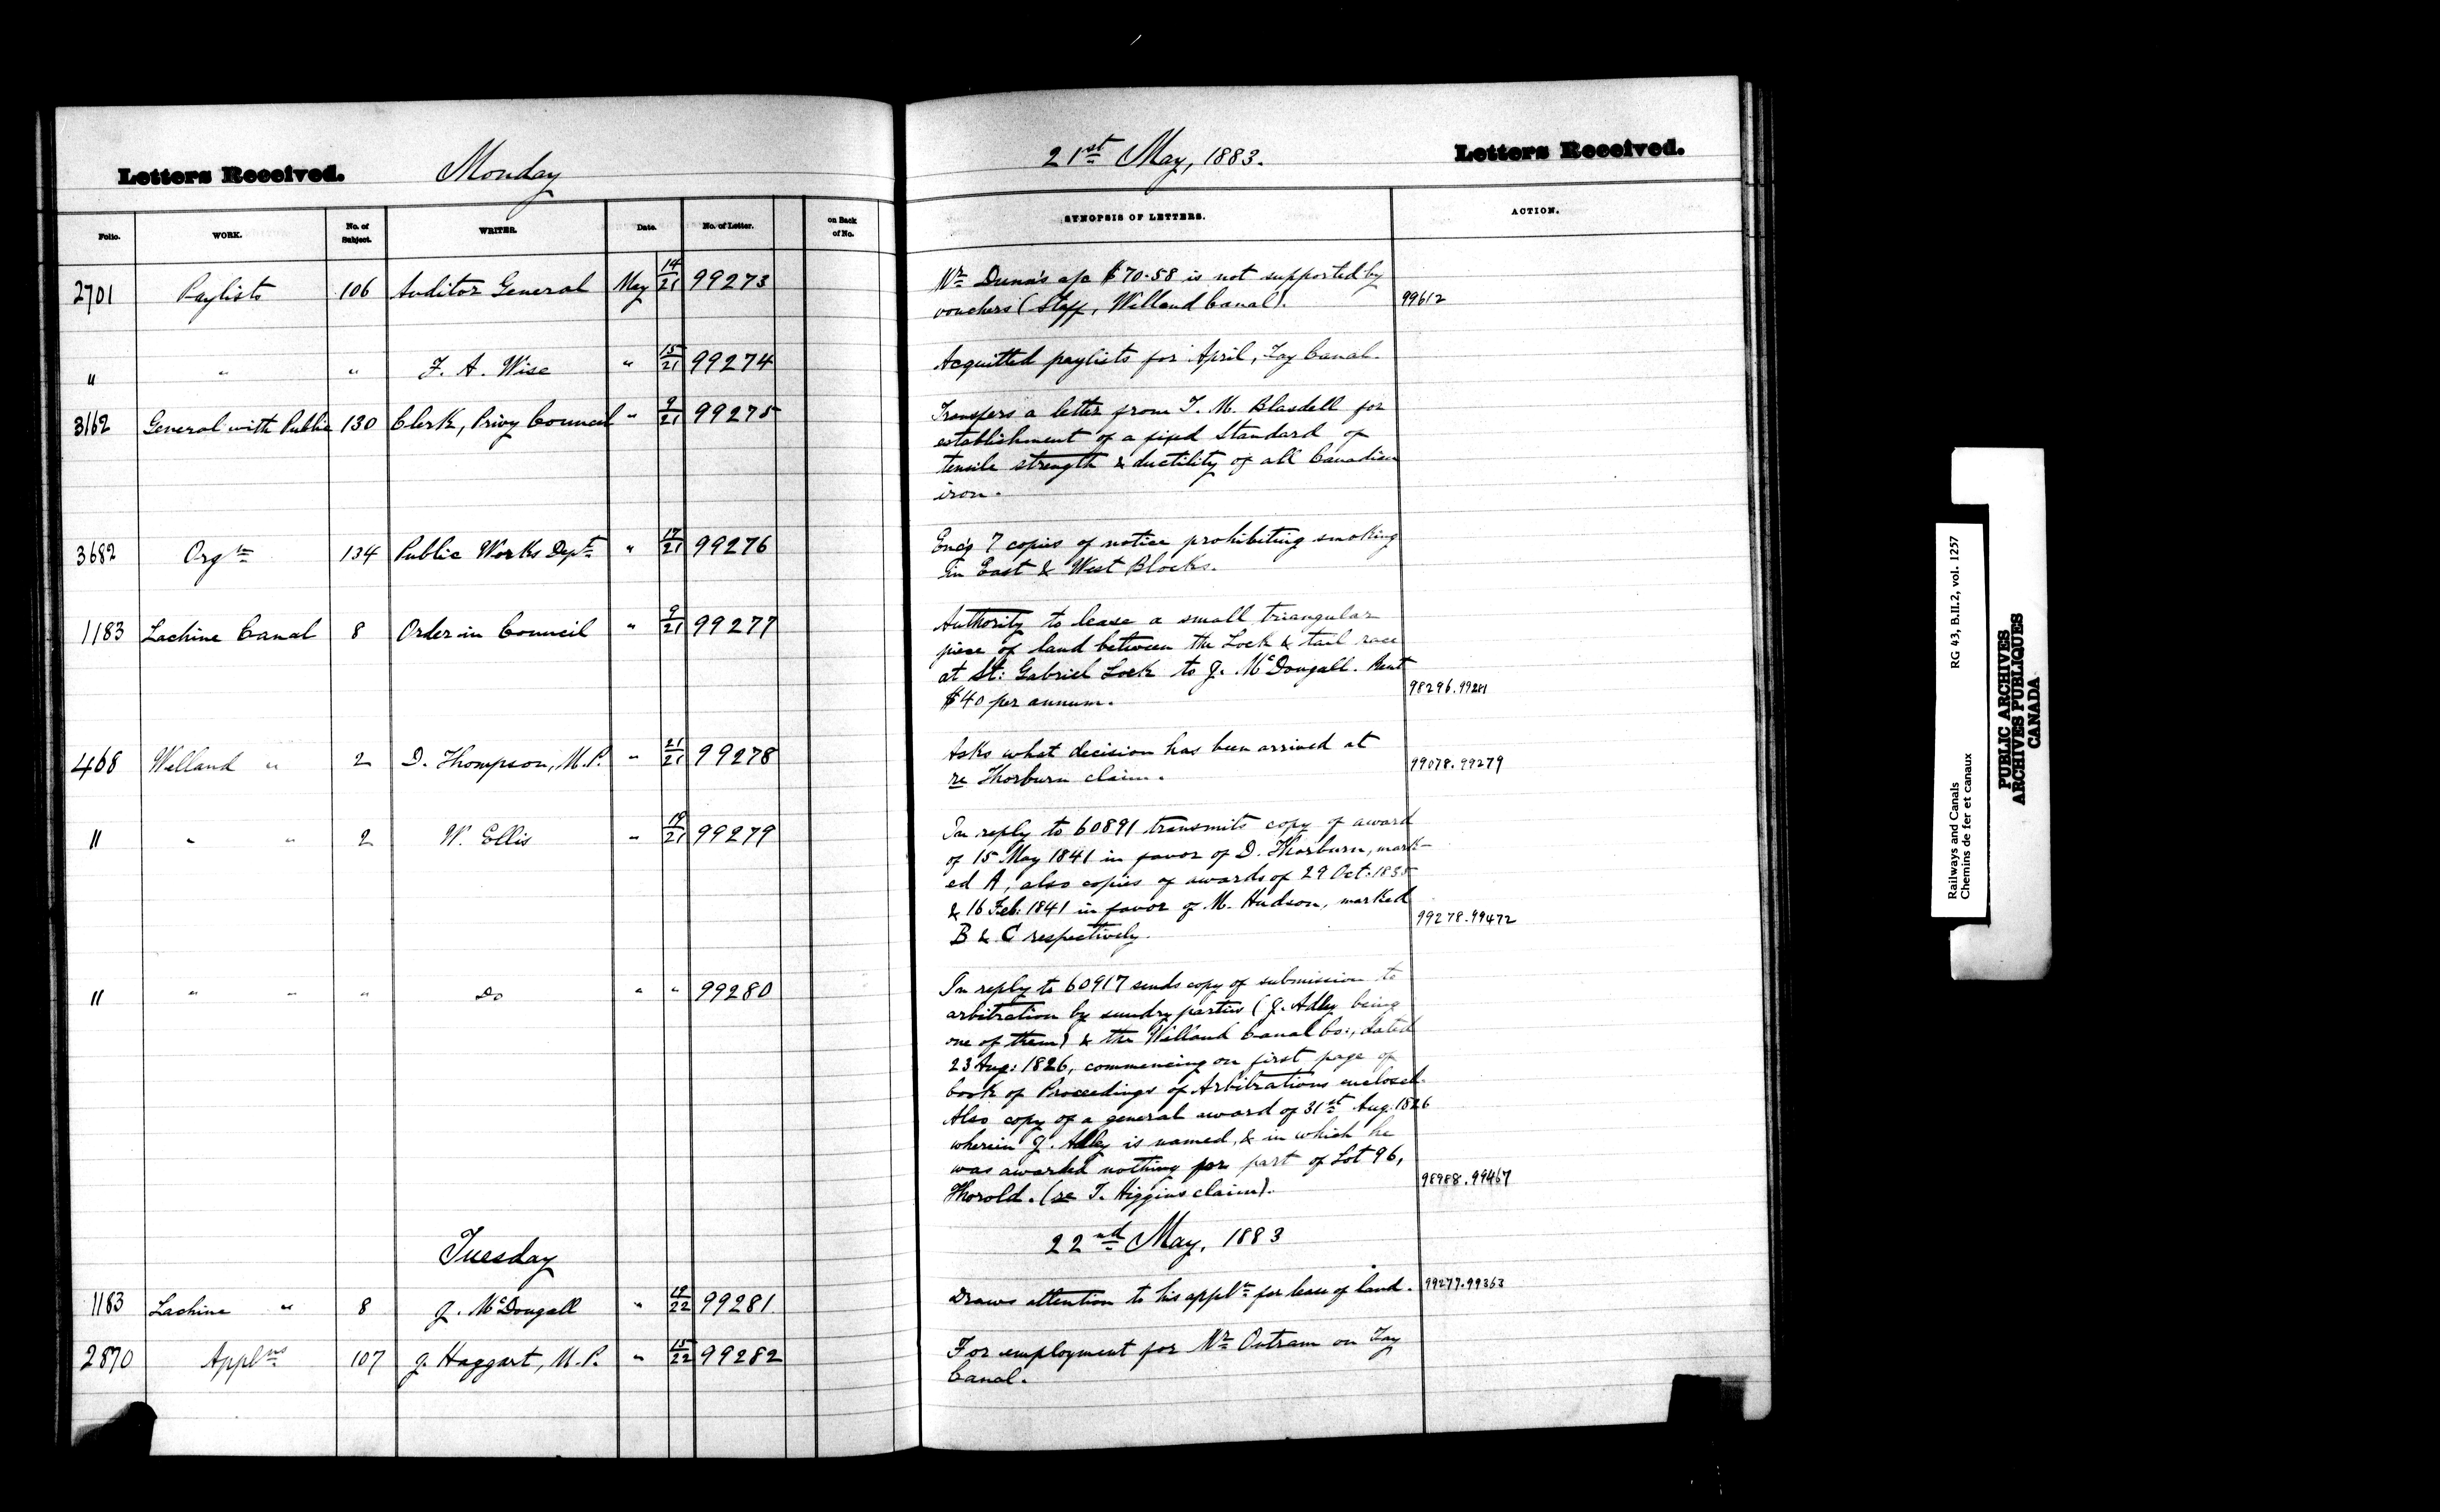 Letters Received. Monday 21st May, 1883. Letters Received.
Folio. WORK. No. of Subject. WRITER. Date. No. of Letter. on Back of No. SYNOPSIS OF LETTERS. ACTION.
2701 Paylists 106 Auditor General May 14/21 99273 Mr Dunn's a/c $70.58 is not supported by
vouchers (Staff, Welland Canal). 99612
" " " F. A. Wise " 15/21 99274 Acquitted paylists for April, Tay Canal.
3162 General with Public 130 Clerk, Privy Council " 9/21 99275 Transfers a letter from T. M. Blasdell for
establishment of a fixed Standard of
tensile strength & ductility of all Canadian
iron.
3682 Orgtn 134 Public Works Dept " 17/21 99276 Enc'g 7 copies of notice prohibiting smoking
in East & West Blocks.
1183 Lachine Canal 8 Order in Council " 9/21 99277 Authority to lease a small triangular
piece of land between the Lock & tail race
at St: Gabriel Lock to J. McDougall. Rent
$40 per annum. 98296.99281
468 Welland " 2 D. Thompson, M.P. " 21/21 99278 Asks what decision has been arrived at
re Thorburn claim. 99078.99279
" " " 2 W. Ellis " 19/21 99279 In reply to 60891 transmits copy of award
of 15 May 1841 in favor of D. Thorburn, mark-
ed A, also copies of awards of 29 Oct: 1835
& 16 Feb: 1841 in favor of M. Hudson, marked
B & C respectively. 99278.99472
" " " " Do " " 99280 In reply to 60917 sends copy of submission to
arbitration by sundry parties (J. Adley being
one of them) & the Welland Canal Co:, dated
23 Aug: 1826, commencing on first page of
book of Proceedings of Arbitrations enclosed.
Also copy of a general award of 31st Aug. 1826
wherein J. Adley is named, & in which he
was awarded nothing for part of Lot 96,
Thorold. (re T. Higgins claim). 98988.99467
Tuesday 22nd May, 1883
1183 Lachine " 8 J. McDougall " 19/22 99281 Draws attention to his appltn for lease of land. 99277.99363
2870 Applns 107 J. Haggart, M.P. " 15/22 99282 For employment for Mr Outram on Tay
Canal.
Railways and Canals RG 43, B.II.2, vol. 1257
Chemins de fer et canaux
PUBLIC ARCHIVES
ARCHIVES PUBLIQUES
CANADA